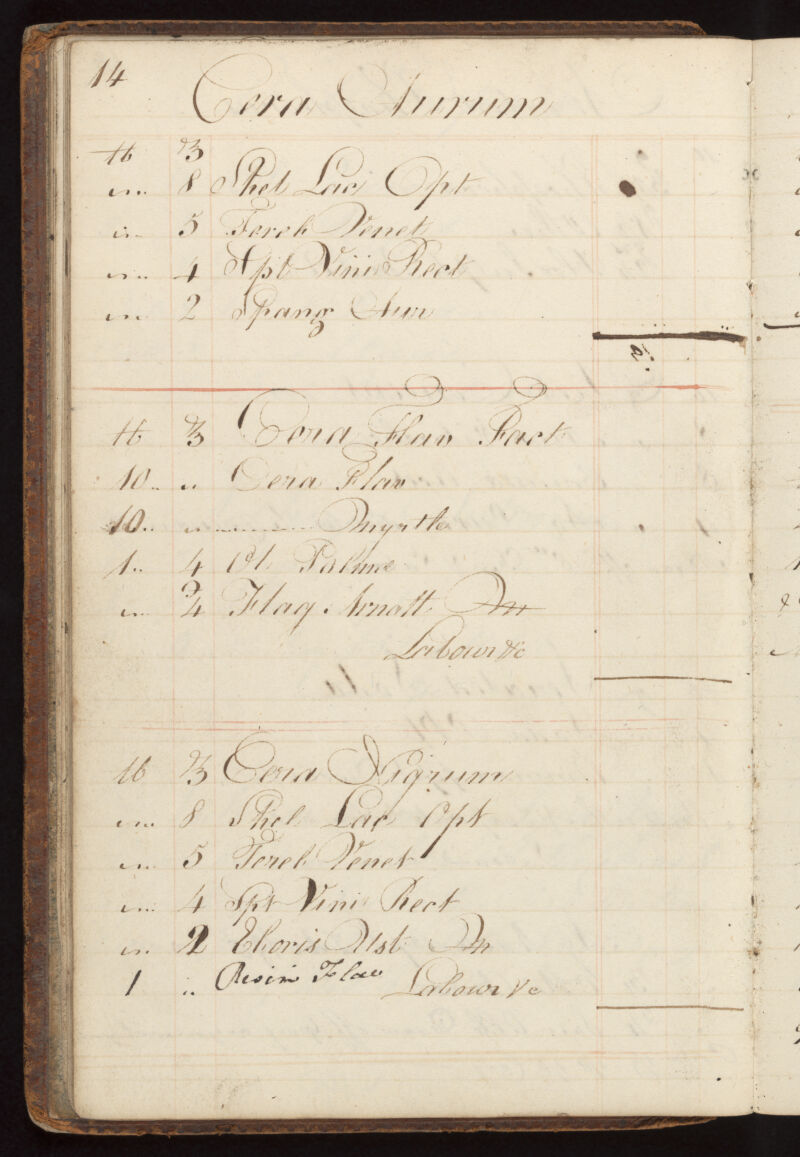 14
Cera Aurum
℔ ℥
" 8 Shel Lac Opt
" 5 Tereb Venet
" 4 Spt Vini Rect
" 2 Spang Aur
℔ ℥ Cera Flav Fact
10 " Cera Flav
10 " Myrtle
1 " 4 Ol Palmæ
" 4 Flag Arnatt
Labour &c
℔ ℥ Cera Nigrum
" 8 Shel Lac Opt
" 5 Tereb Venet
" 4 Spt Vini Rect
" 2 Eboris Ust
1 " Resin Flav Labour &c